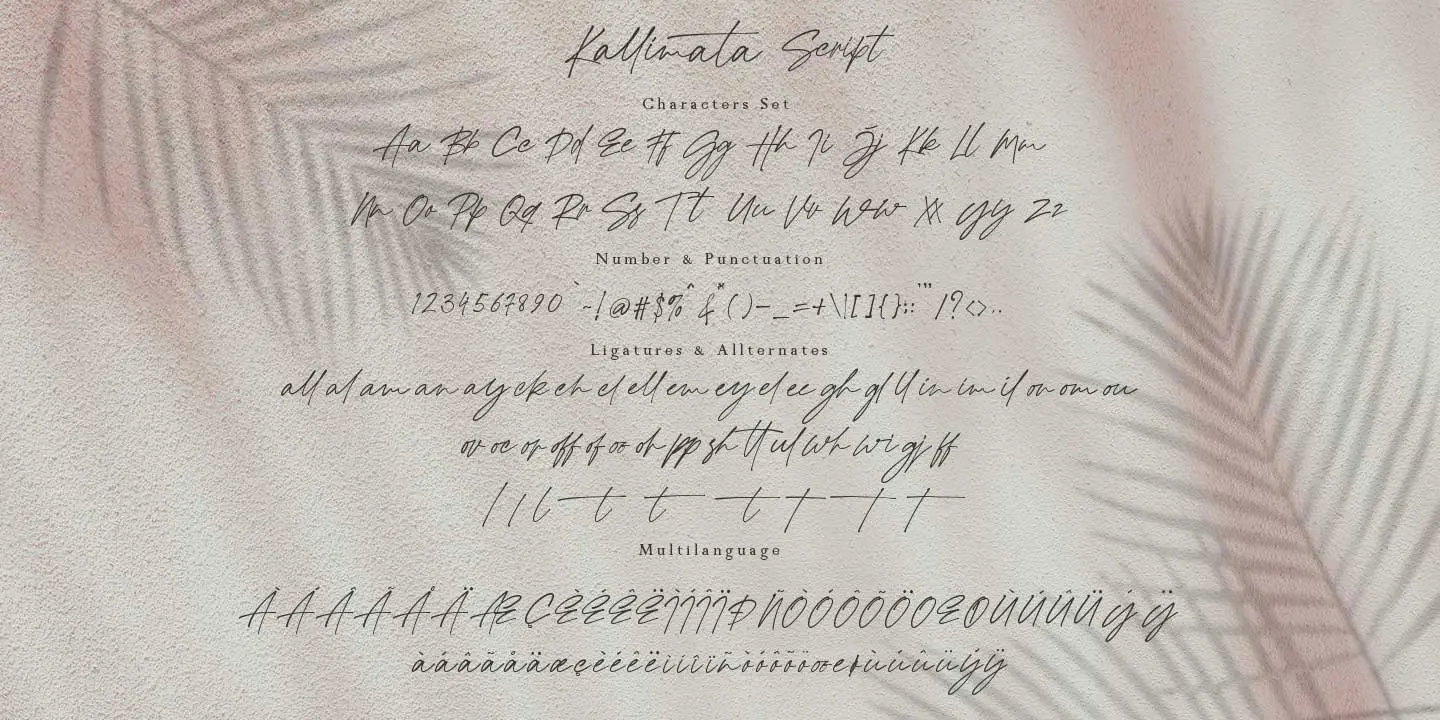 Kallimata Script
Characters Set
Aa Bb Cc Dd Ee Ff Gg Hh Ii Jj Kk Ll Mm
Nn Oo Pp Qq Rr Ss Tt Uu Vv Ww Xx Yy Zz
Number & Punctuation
1234567890 ` ~ ! @ # $ % ^ & * ( ) - _ = + \ | [ ] { } ; : ' " / ? < > . .
Ligatures & Allternates
all al am an ay ck ch cl ell em ey el ee gh gl ll in im il on om ou
ov oe or off of oo oh pp sh tt ul wh wi gj ff
l l l t t t t t t
Multilanguage
À Á Â Ã Å Ä Æ Ç È É Ê Ë Ì Í Î Ï Ð Ñ Ò Ó Ô Õ Ö Œ Ø Ù Ú Û Ü Ý Ÿ
à á â ã å ä æ ç è é ê ë ì í î ï ñ ò ó ô õ ö œ ø ù ú û ü ý ÿ